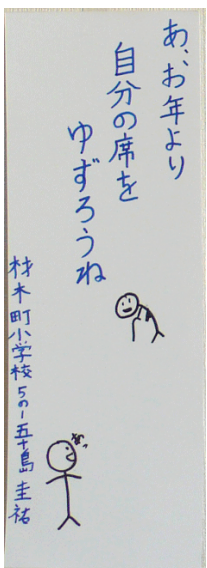 あ、お年より
自分の席を
ゆずろうね
材木町小学校5の一五十島圭祐
あっ